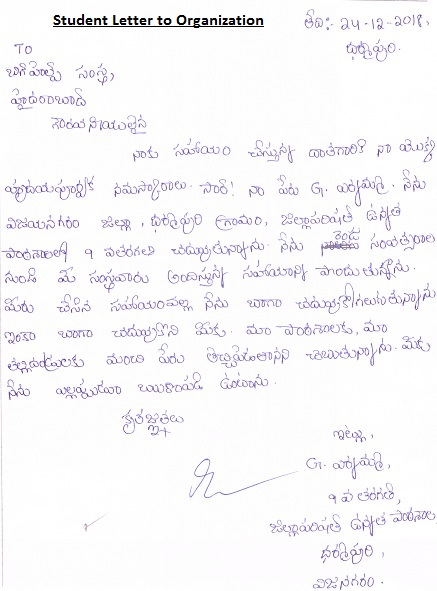 Student Letter to Organization
తేది:- 24-12-2018,
ధర్మపురి.
TO
బాగీహెల్ప్ సంస్థ,
హైదరాబాద్
గౌరవనీయులైన
నాకు సహాయం చేస్తున్న దాతగారికి నా యొక్క
హృదయపూర్వక నమస్కారాలు. సార్! నా పేరు G. నేను
విజయనగరం జిల్లా, ధర్మపురి గ్రామం, జిల్లాపరిషత్ ఉన్నత
పాఠశాలలో 9 వతరగతి చదువుతున్నాను. నేను రెండు సంవత్సరాల
నుండి మీ సంస్థవారు అందిస్తున్న సహాయాన్ని పొందుతున్నాను.
మీరు చేసిన సహాయంవల్ల నేను బాగా చదువుకోగలుగుతున్నాను
ఇంకా బాగా చదువుకొని మీకు. మా పాఠశాలకు, మా
తల్లిదండ్రులకు మంచి పేరు తెచ్చిపెడతానని చెబుతున్నాను. మీకు
నేను ఎల్లప్పుడూ ఋణపడి ఉంటాను.
కృతజ్ఞతలు
ఇట్లు,
G.
9 వ తరగతి,
జిల్లాపరిషత్ ఉన్నత పాఠశాల
ధర్మపురి,
విజనగరం.